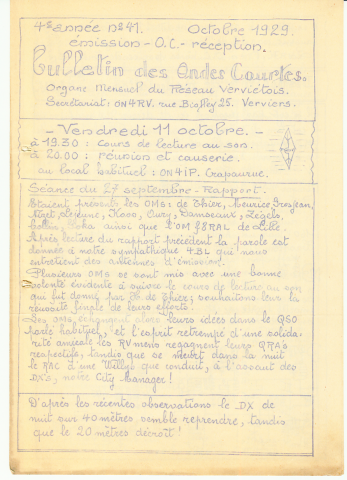 4e année n°41. Octobre 1929.
émission - O.C. - réception.
Bulletin des Ondes Courtes.
Organe Mensuel du Réseau Verviétois.
Secrétariat: ON4RV. rue 25. Verviers.
- Vendredi 11 octobre. -
à 19.30 : cours de lecture au son.
à 20.00 : réunion et causerie.
au local habituel : ON4IP. Crapaurue.
Séance du 27 septembre - Rapport. -
Etaient présents les OMs: de Thier, Maurice Grosjean,
Lejeune, Koos, Oury, Damseaux,
ainsi que l'OM f8RAL de Lille.
Après lecture du rapport précédent la parole est
donnée à notre sympathique 4BL qui nous
entretient des antennes d'émission.
Plusieurs OMs se sont mis avec une bonne
volonté évidente à suivre le cours de lecture au son
qui fut donné par de Thier; souhaitons leur la
réussite finale de leurs efforts.
Les OMs échangent alors leurs idées dans le QSO
parlé habituel, et l'esprit retrempé d'une solida-
rité amicale les RV mens regagnent leurs QRA's
respectifs, tandis que se meurt dans la nuit
le RAC d'une Willys que conduit, à l'assaut des
DX's, notre City Manager !
D'après les récentes observations le DX de
nuit sur 40 mètres semble reprendre, tandis
que le 20 mètres décroît !